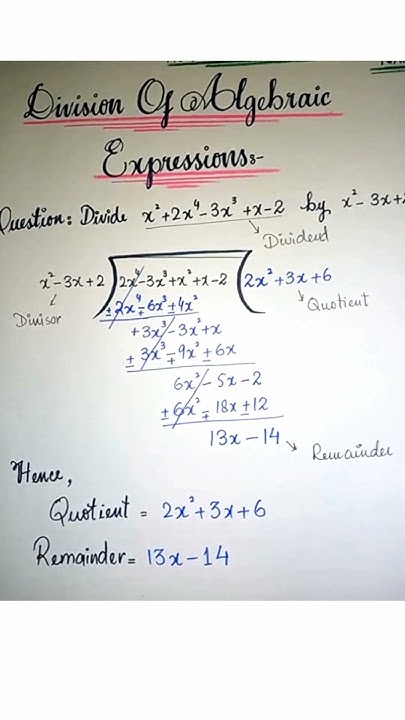 Division Of Algebraic
Expressions:-
Question: Divide x²+2x⁴-3x³+x-2 by x²-3x+2
Dividend
x²-3x+2 ) 2x⁴-3x³+x²+x-2 ( 2x²+3x+6
Divisor
Quotient
±2x⁴∓6x³±4x²
+3x³-3x²+x
±3x³∓9x²±6x
6x²-5x-2
±6x²∓18x±12
13x-14
Remainder
Hence,
Quotient = 2x²+3x+6
Remainder = 13x-14